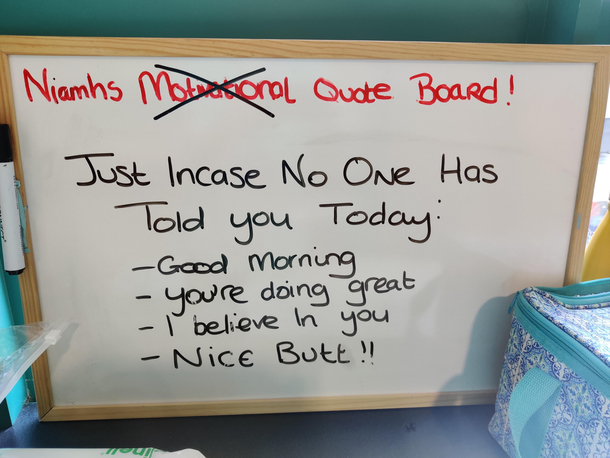 Niamhs Motivational Quote Board!
Just Incase No One Has
Told you Today:
- Good Morning
- you're doing great
- I believe In you
- Nice Butt!!